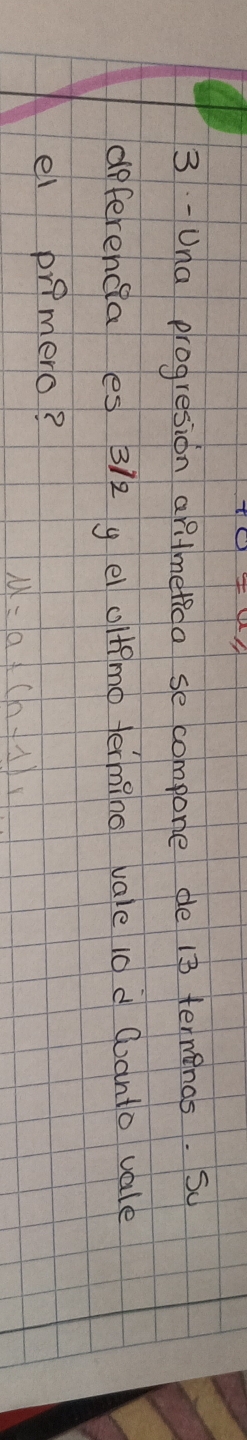 3.- Una progresión aritmetica se compone de 13 terminos. Su
diferencia es 3/2 y el ultimo término vale 10 ¿ Cuanto vale
el primero?